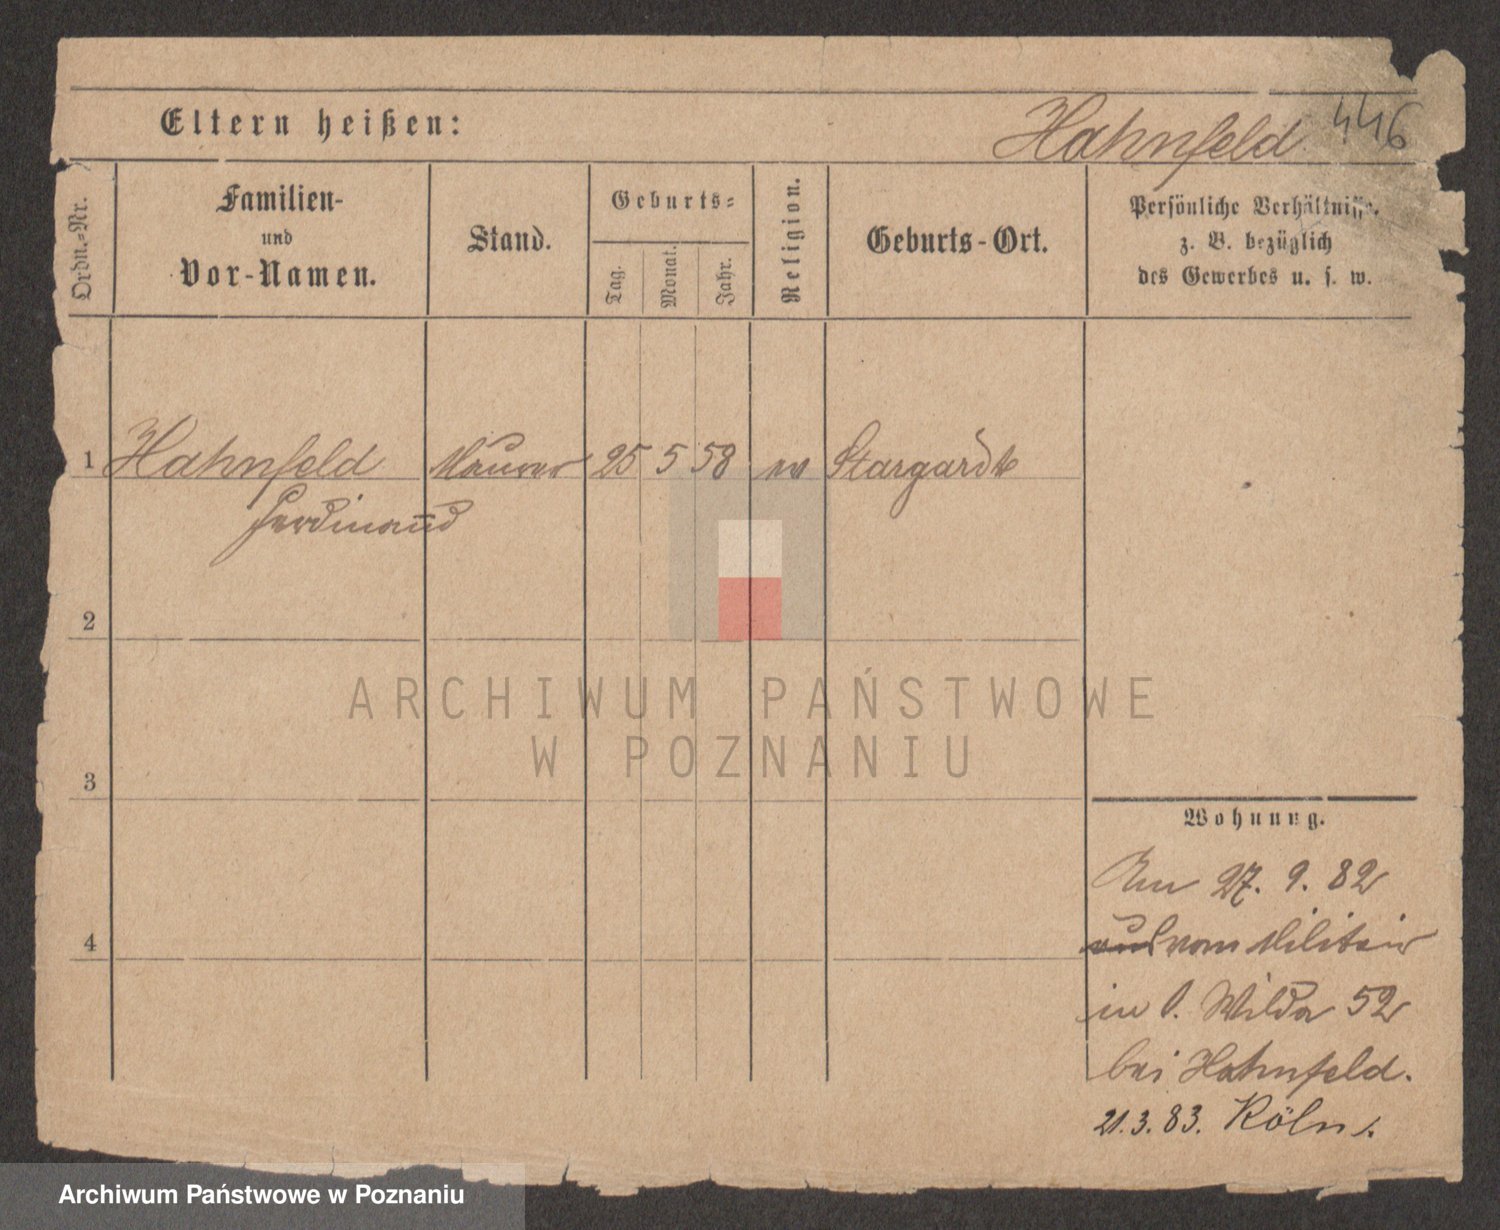 Eltern heißen:
Hahnfeld
446
Ordn.-Nr.
Familien-
und
Vor-Namen.
Stand.
Geburts-
Tag.
Monat.
Jahr.
Religion.
Geburts-Ort.
Persönliche Verhältnisse.
z. B. bezüglich
des Gewerbes u. s. w.
1 Hahnfeld Maurer 25 5 58 ev Stargardt
Ferdinand
2
3
4
Wohnung.
Am 27. 9. 82
vom Militair
in O. Wilda 52
bei Hahnfeld.
21.3.83. Köln
ARCHIWUM PAŃSTWOWE
W POZNANIU
Archiwum Państwowe w Poznaniu